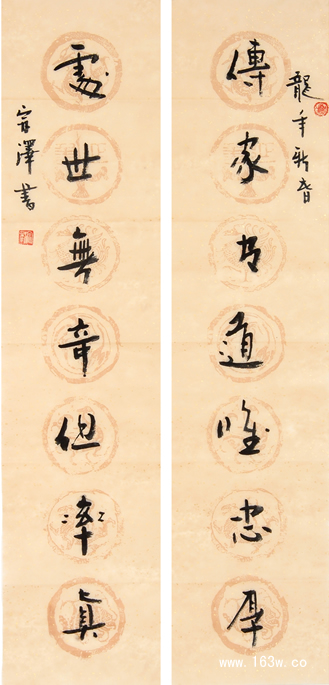 龍年新春
傳家有道唯忠厚
處世無奇但率真
澤書
www.163w.com